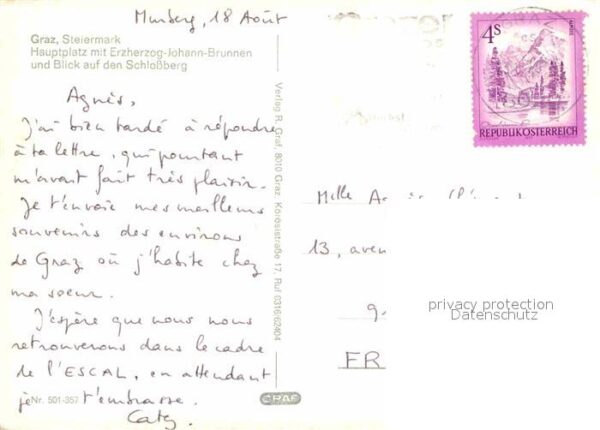 Murberg, 18 Août
Graz, Steiermark
Hauptplatz mit Erzherzog-Johann-Brunnen
und Blick auf den Schloßberg
Agnès,
j'ai bien tardé à répondre
à ta lettre, qui pourtant
m'avait fait très plaisir.
Je t'envoie mes meilleurs
souvenirs des environs
de Graz où j'habite chez
ma soeur.
J'espère que nous nous
retrouverons dans le cadre
de l'ESCAL, en attendant
je t'embrasse.
Caty.
Nr. 501-357
Verlag R. Graf, 8010 Graz, Körösistraße 17, Ruf 0316/62404
GRAF
4S
REPUBLIK ÖSTERREICH
Melle
13, aven
9.
FR
privacy protection
Datenschutz